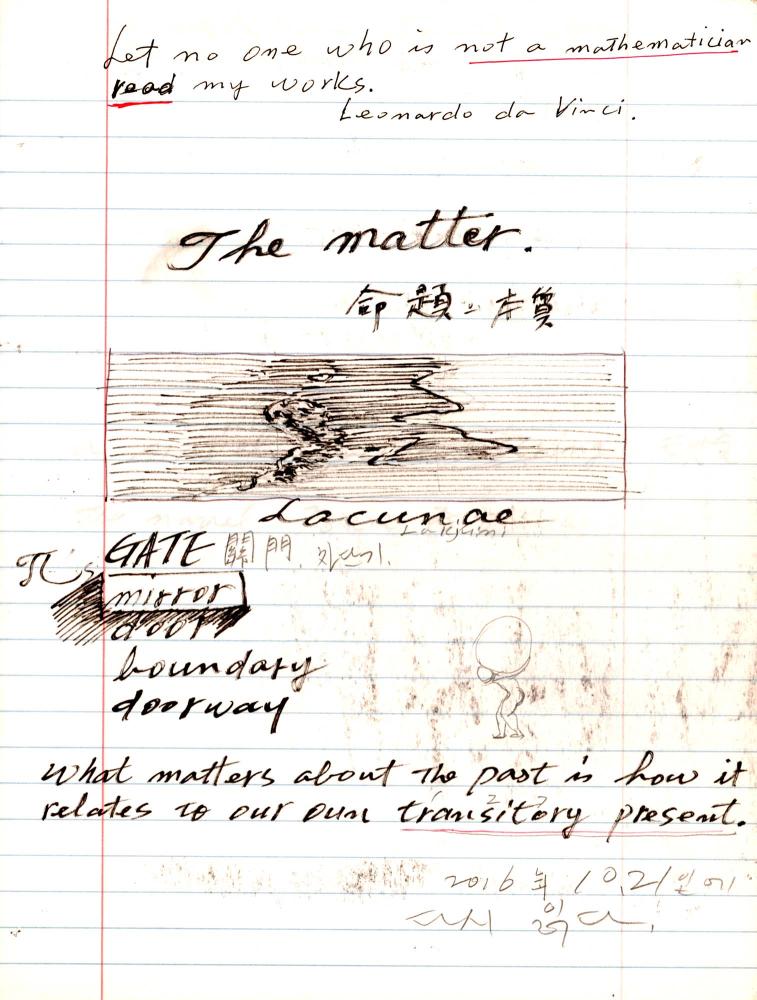 Let no one who is not a mathematician
read my works.
Leonardo da Vinci.
The matter.
命題 本質
Lacunae
Lakjimi
π's GATE 關門
mirror
door
boundary
doorway
What matters about the past is how it
relates to our own transitory present.
2016年 10.21일에
다시 읽다.